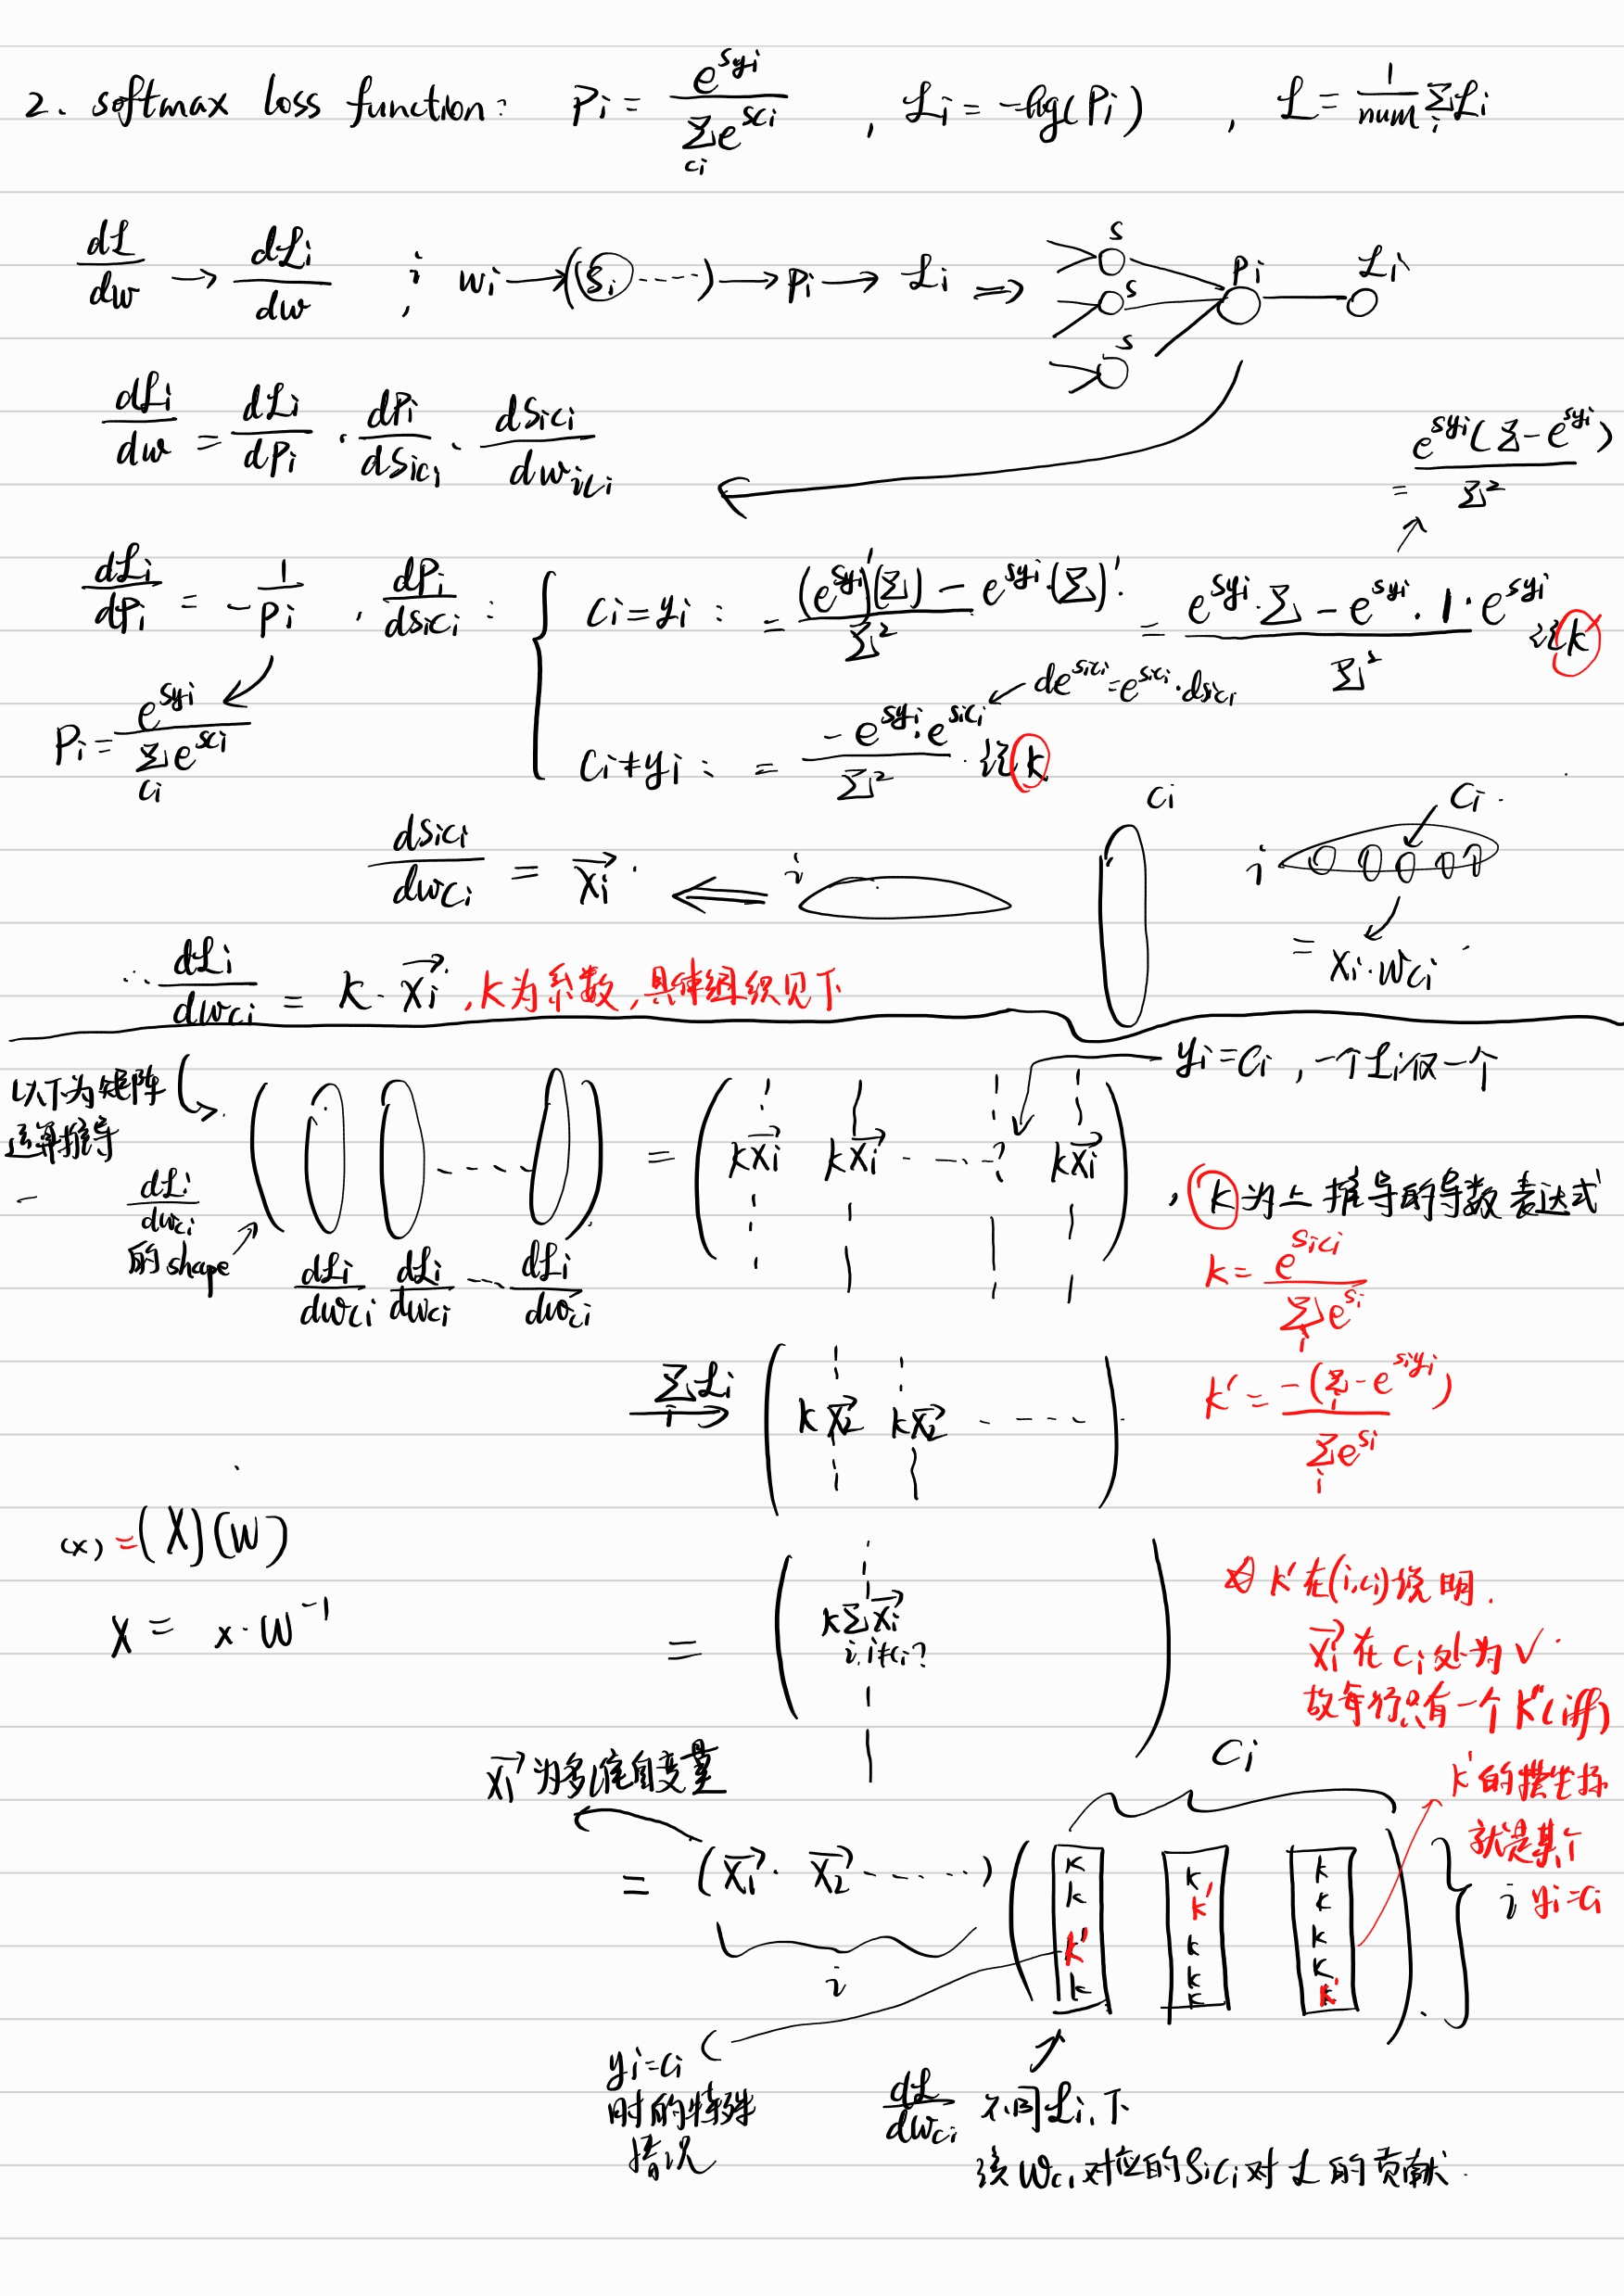 2. softmax loss function: Pi = e^{syi} / Σ_{ci} e^{sci} , Li = -log(Pi) , L = 1/num Σ_i Li
dL/dw → dLi/dw ; wi → (si ----) → pi → Li ⇒ s s s Pi Li
dLi/dw = dLi/dPi · dPi/dsici · dsici/dwici
= e^{syi}(Σ - e^{syi}) / Σ²
dLi/dPi = -1/Pi , dPi/dsici : { ci=yi : = ((e^{syi})'(Σ) - e^{syi}·(Σ)') / Σ² = (e^{syi}·Σ - e^{syi}·1·e^{syi}) / Σ² 记k
Pi = e^{syi} / Σ_{ci} e^{sci}
de^{sici} = e^{sici}·dsici
ci≠yi : = -e^{syi}·e^{sici} / Σ² · 记k
dsici/dwci = xi→ · ⇐ i ci i ci
= xi·wci
∴ dLi/dwci = k·xi→ , k为系数,具体组织见下
yi=ci , 一个Li仅一个
以下为矩阵
运算推导
dLi/dwci
的shape
( ---- ) = ( kxi→ kxi→ ----? kxi→ ) , k为上推导的导数表达式
dLi/dwci dLi/dwci ---- dLi/dwci
k = e^{sici} / Σ_i e^{si}
ΣLi → ( kx2→ kx2→ ---- )
k' = -(Σ_i - e^{siyi}) / Σ_i e^{si}
(x) = (X)(W)
X = x·W^{-1}
= ( kΣxi→ i,i≠ci? )
k'在(i,ci)说明.
xi→在ci处为✓.
故每行只有一个k'(iff)
ci
xi→为多维自变量
k'的横坐标
就是某个
i yi=ci
= (x1→· x2→ ------) ( k k k' k k k' k k k k k k k k' )
i
yi=ci
时的特殊
情况
dL/dwci 不同Li下
该wci对应的sici对L的贡献.